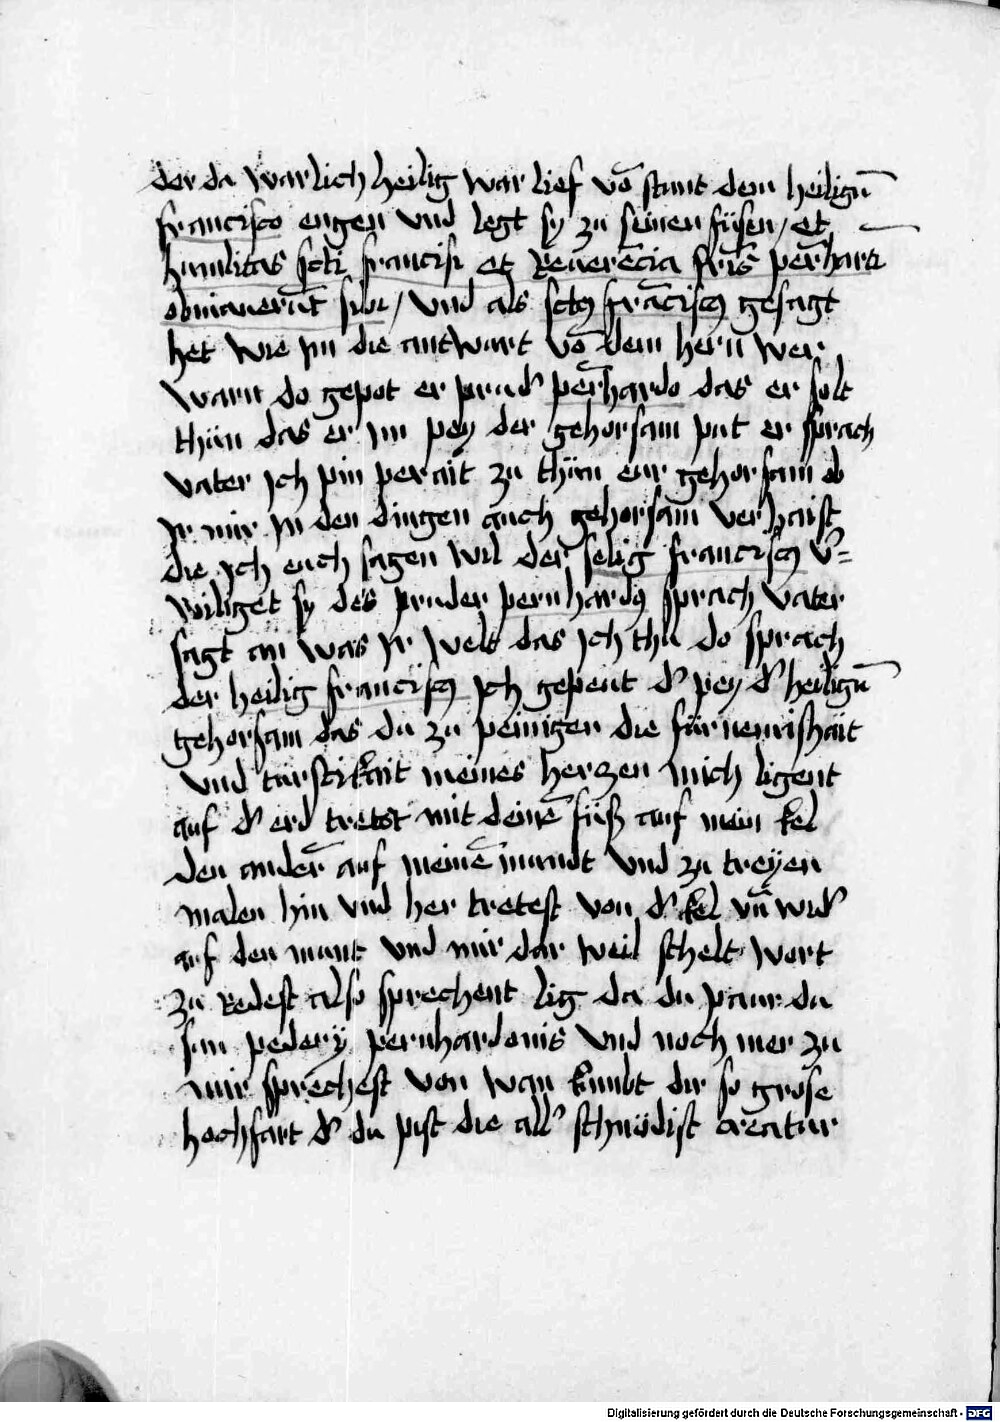 der da warlich heilig war lief vō stunt dem heilign̄
francisco engen und legt sy zu seinen füsen / et
humilitas sctī francisci et Reuerēcia frīs perhardi
obuiauerūt sibi / und als sctꝰ frāciscꝰ gesagt
het wie im die antwurt vō dem hern wer
warn do gepot er prud' perhardo das er solt
thün das er im pey der gehorsam put er sprach
vater ich pin perait zu thün eur gehorsam ob
ir mir in den dingen auch gehorsam verhaist
die ich euch sagen wil der selig franciscꝰ v'=
williget sy des pruder pernhardꝰ sprach vater
sagt an was ir welt das ich thu do sprach
der heilig franciscꝰ ich gepeut d' pey d' heilign̄
gehorsam das du zu peinigen die fürnemishait
und türstikait meines herzen mich ligent
auf d' erd tretst mit deinē füß auf mein kel
den anderī auf meinē mundt und zu dreyen
malen hin und her tretest von d' kel vn̄ wid'
auf den munt und mir dar weil schelt wort
zu redest also sprechent lig da du paur du
sun pedery pernhardonis und noch mer zu
mir sprechest von wan kumbt dir so grose
hochfart d' du pist die all' schnödist creatur
Digitalisierung gefördert durch die Deutsche Forschungsgemeinschaft - DFG